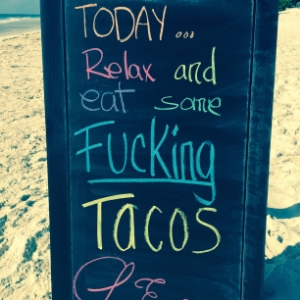 TODAY...
Relax and
eat some
Fucking
Tacos